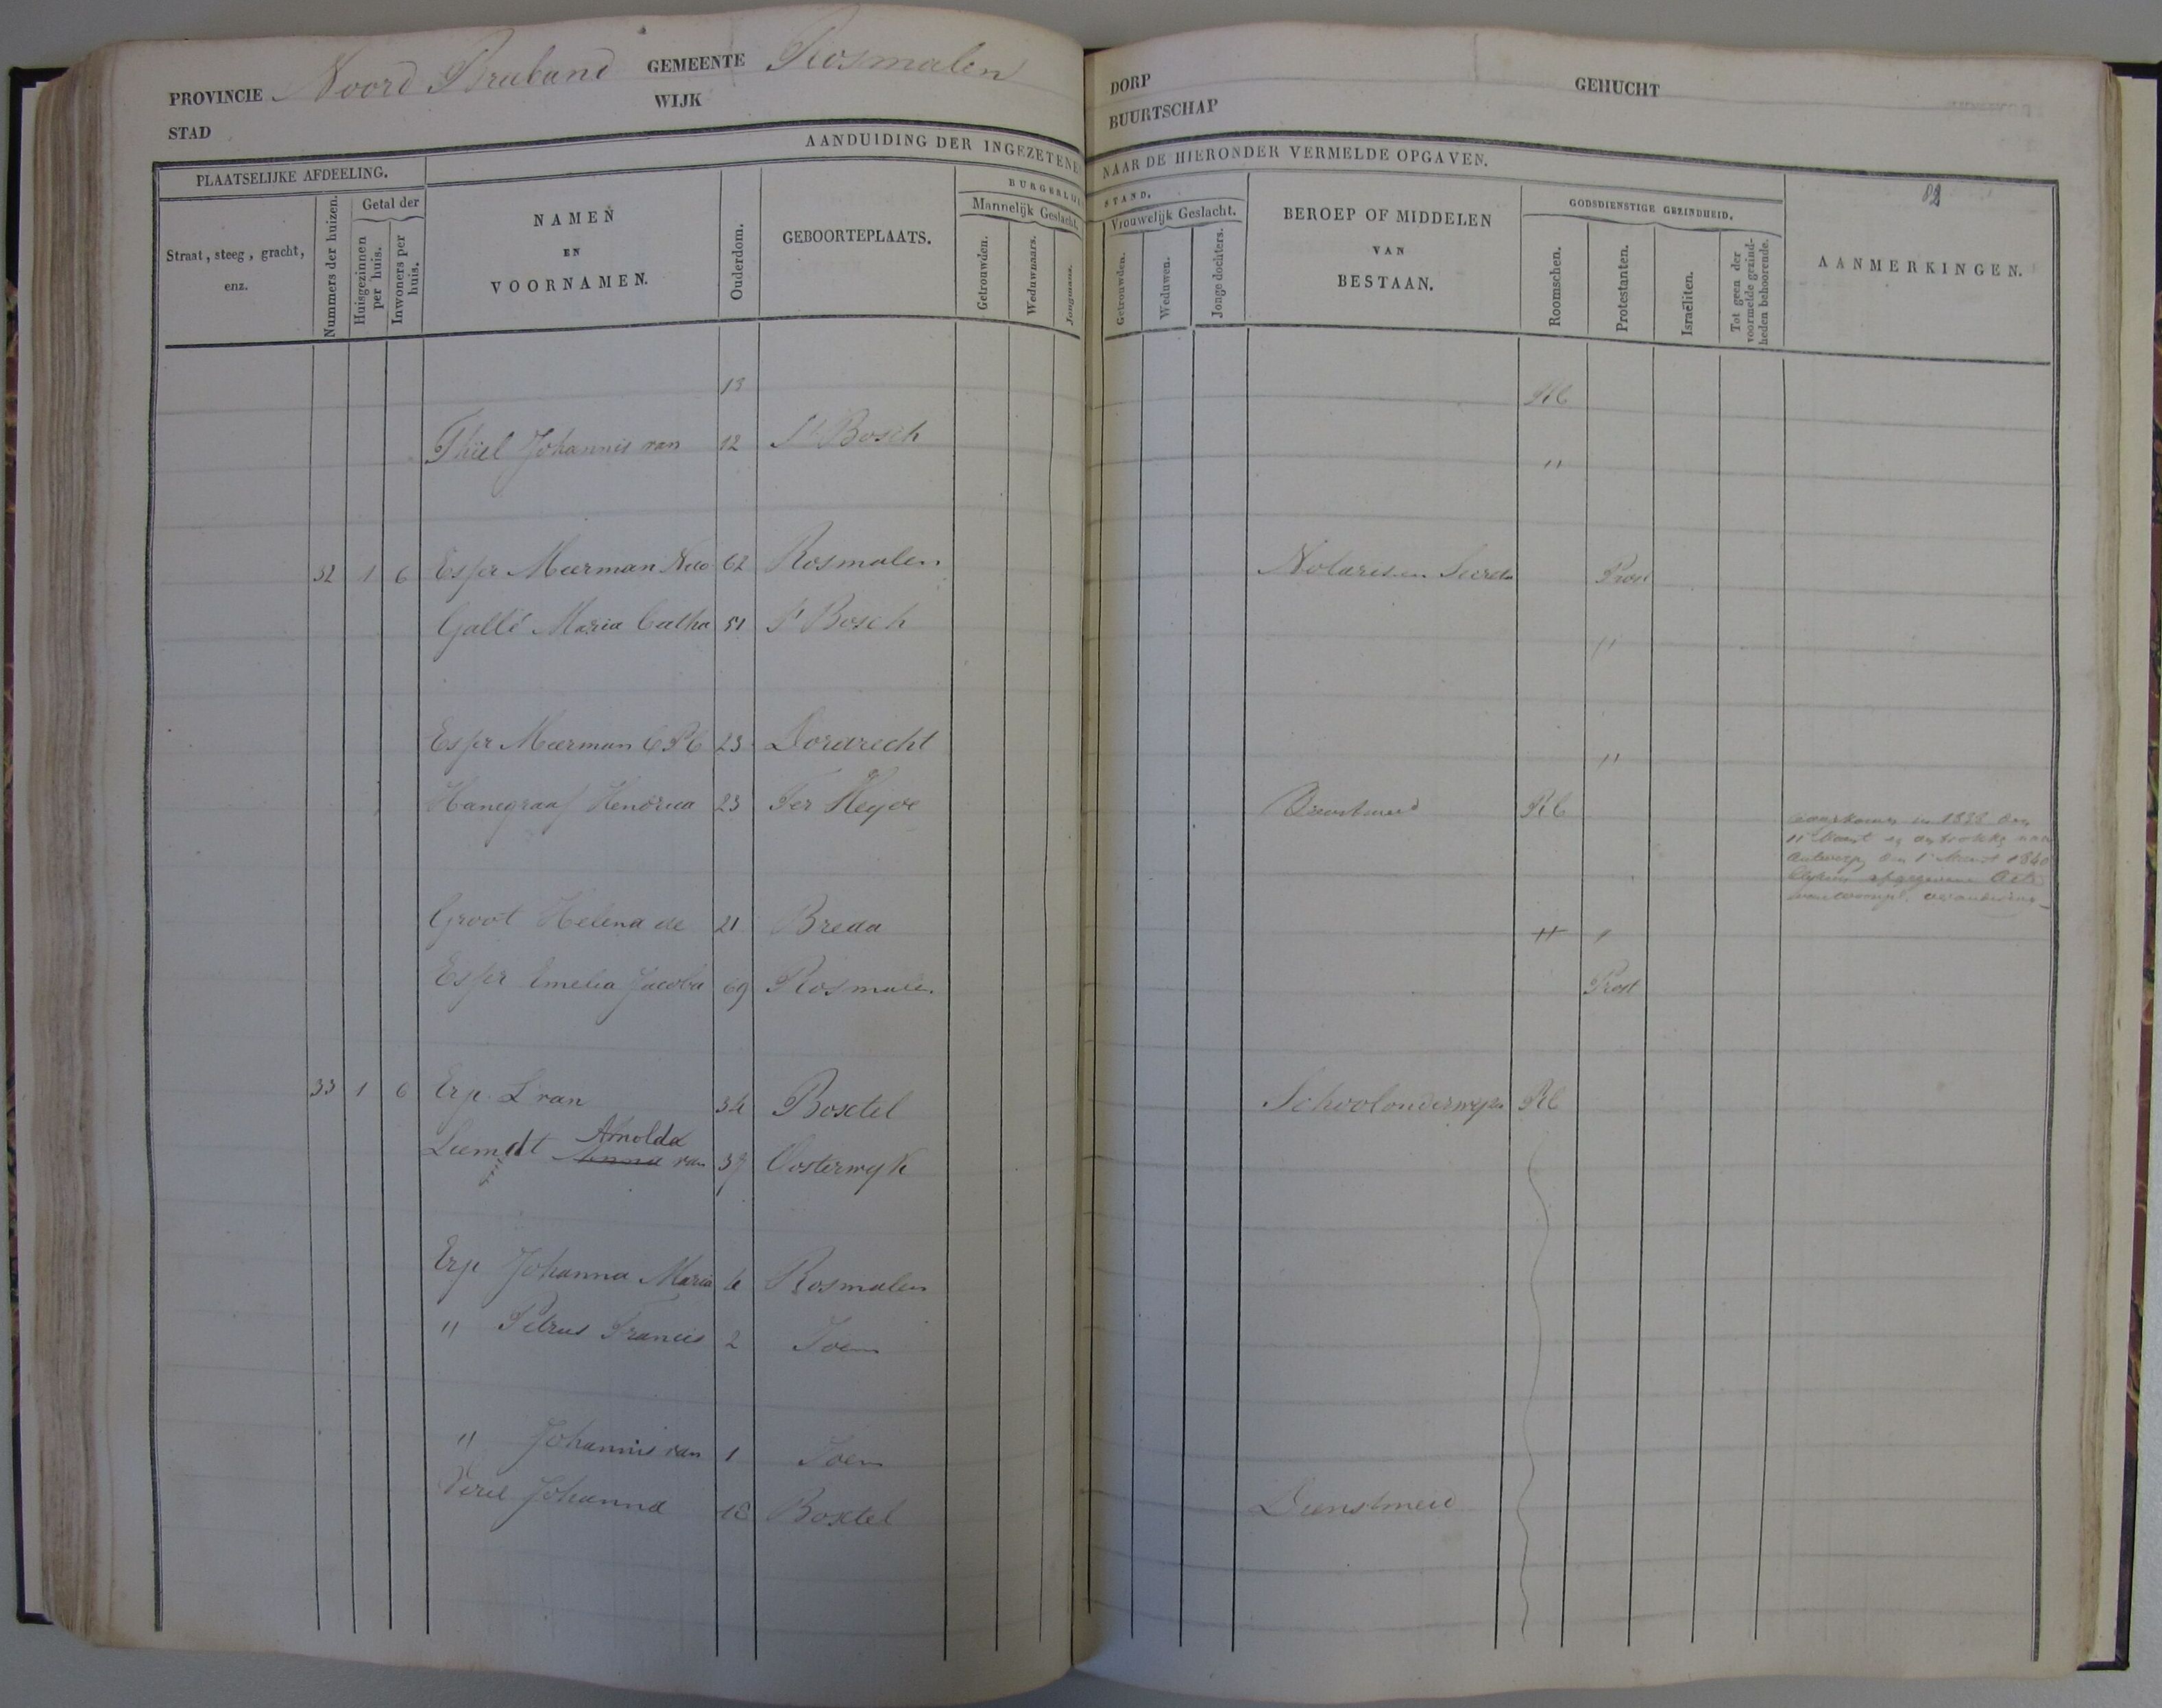 PROVINCIE Noord Braband GEMEENTE Rosmalen
STAD WIJK
DORP GEHUCHT
BUURTSCHAP
AANDUIDING DER INGEZETENE NAAR DE HIERONDER VERMELDE OPGAVEN.
PLAATSELIJKE AFDEELING.
Straat, steeg, gracht, enz.
Nummers der huizen.
Getal der
Huisgezinnen per huis.
Inwoners per huis.
NAMEN
EN
VOORNAMEN.
Ouderdom.
GEBOORTEPLAATS.
BURGERLIJ STAND.
Mannelijk Geslacht.
Getrouwden.
Weduwnaars.
Jongmans.
Vrouwelijk Geslacht.
Getrouwden.
Weduwen.
Jonge dochters.
BEROEP OF MIDDELEN
VAN
BESTAAN.
GODSDIENSTIGE GEZINDHEID.
Roomschen.
Protestanten.
Israëliten.
Tot geen der voormelde gezindheden behoorende.
AANMERKINGEN.
82
13 RC
Thiel Johannis van 12 St Bosch "
32 1 6 Esser Meerman Nico 62 Rosmalen Notaris en Secreta Prot
Gallé Maria Catha 51 St Bosch "
Esser Meerman 23 Dordrecht "
Hanegraaf Hendrica 23 Ter Heyde RC
in 1838 den
Antwerp den 1 Maart 1840
Groot Helena de 21 Breda " "
Esser Emelia Jacoba 69 Rosmalen Prot
33 1 6 Erp L van 34 Boxtel Schoolonderwyzer RC
Arnolda
Liemdt Anna van 37 Oosterwyk
Erp Johanna Maria 4 Rosmalen
" Petrus Francis 2 Idem
" Johannis van 1 Idem
Johanna 18 Boxtel Dienstmeid